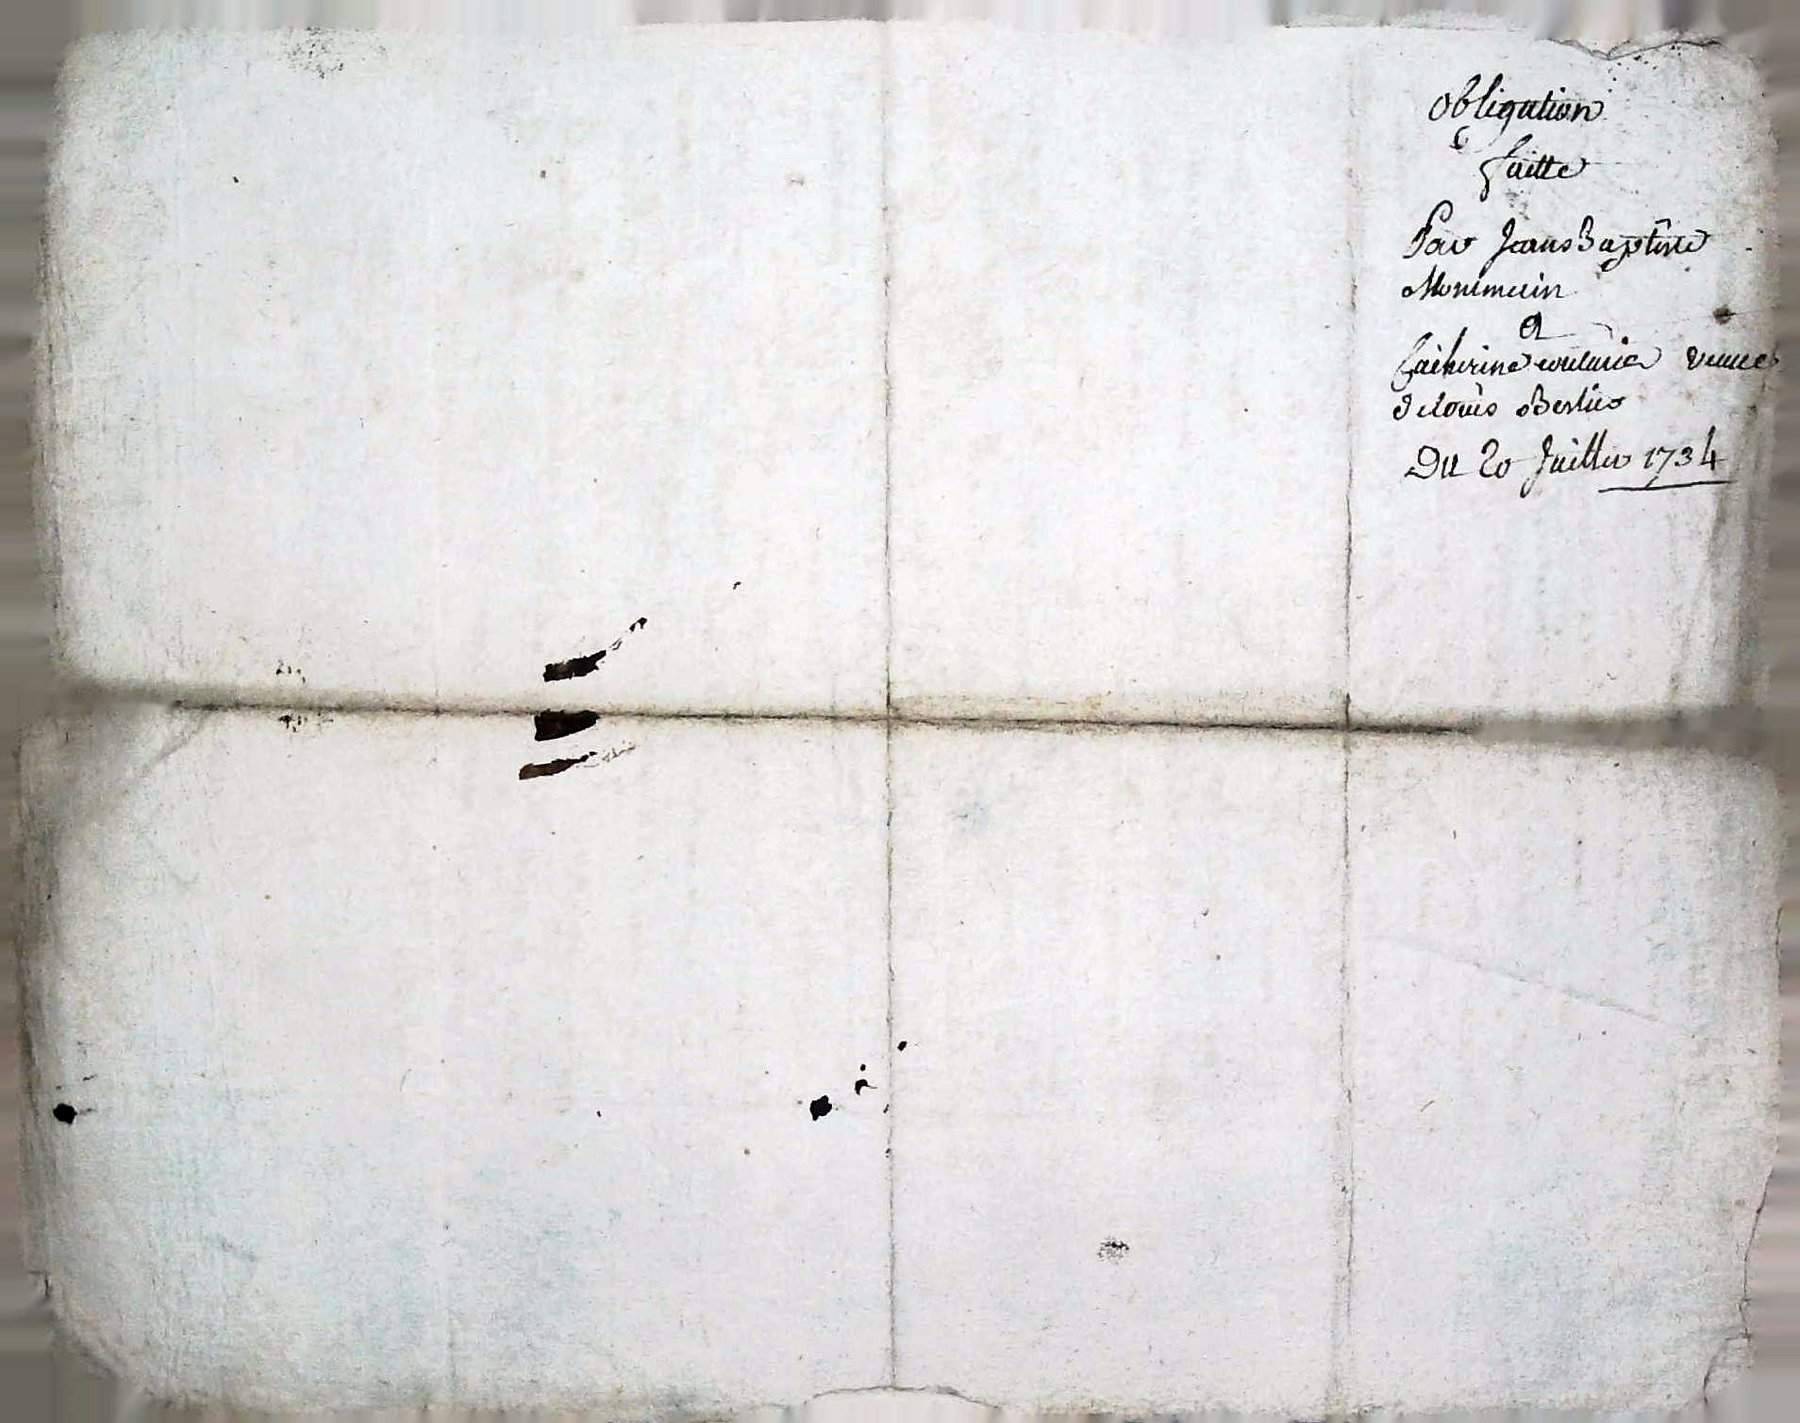 obligation
faitte
Par Jean Baptiste
Monemein
A
Catherine veuve
de louis Berlier
Du 20 Juillet 1734